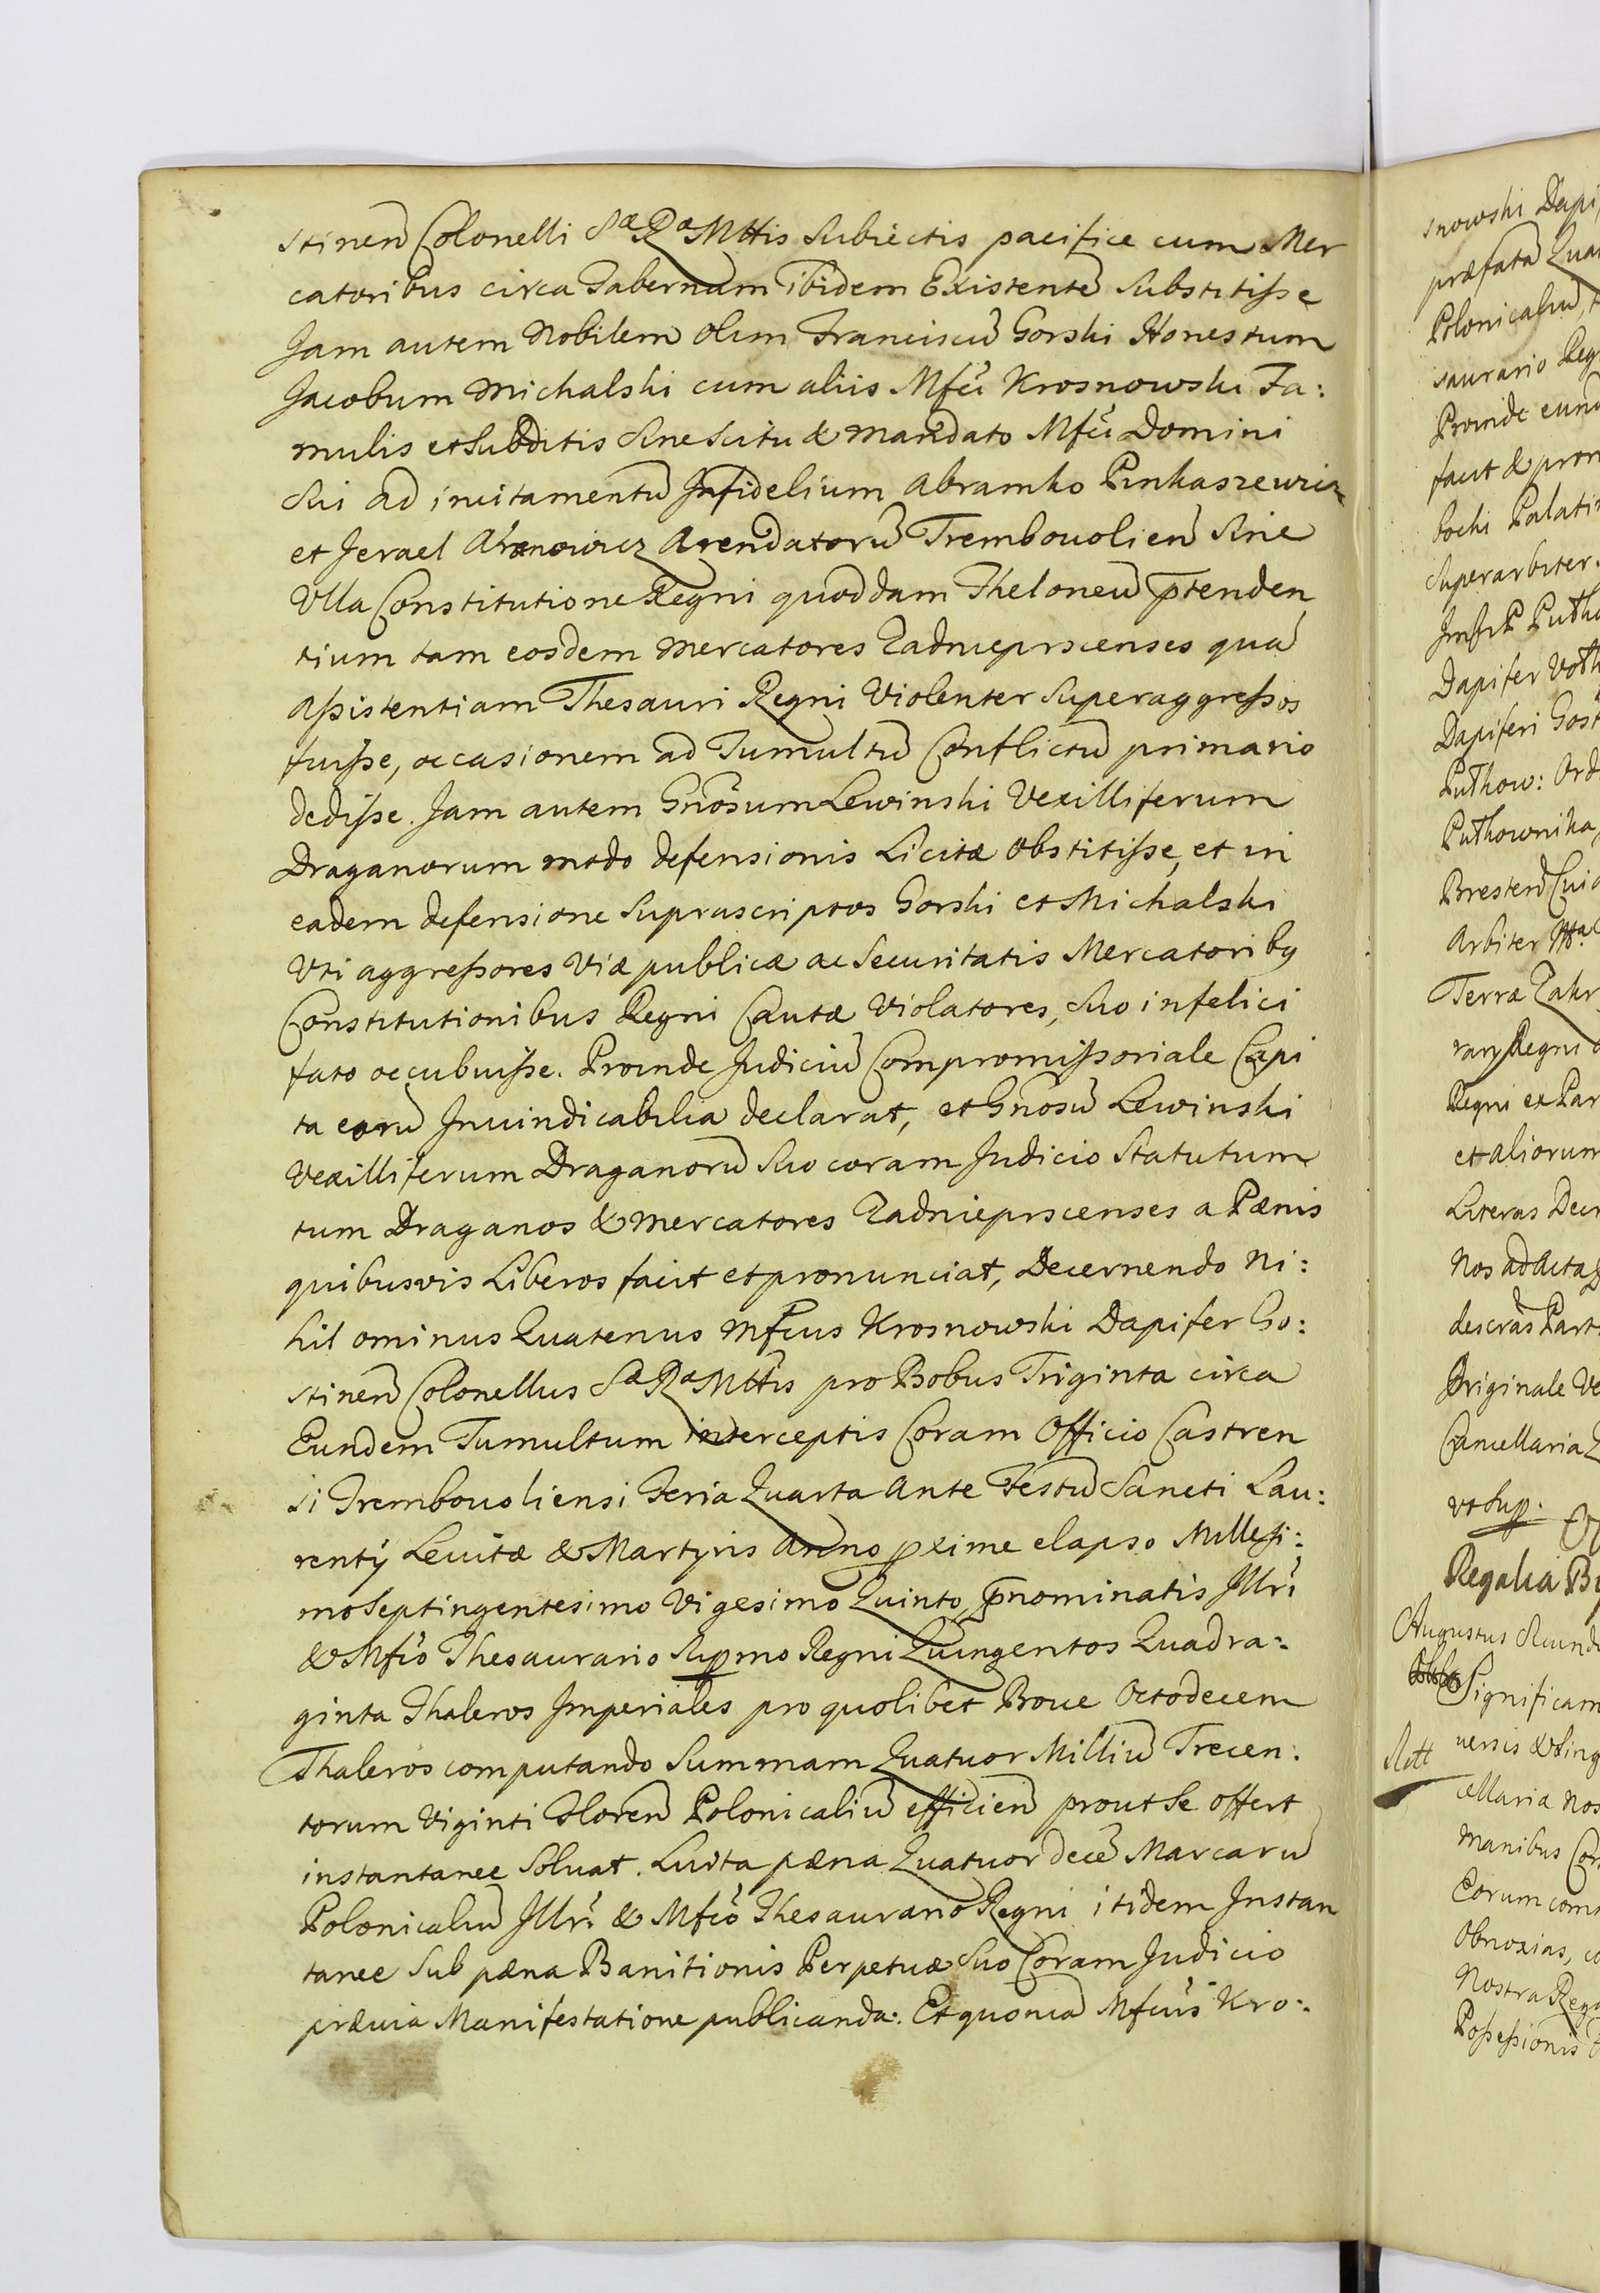 stinen̄ Colonelli Sæ Ræ Mttis subiectis pacifice cum Mer
catoribus circa Tabernam ibidem Existentē substitisse
Jam autem Nobilem olim Franciscū Gorski Honestum
Jacobum Michalski cum aliis Mfci Krosnowski Fa:
mulis et subditis sine scitu & mandato Mfci Domini
sui ad incitamentū Infidelium Abramko Pinkaszewicz
et Jerael Aronowicz Arendatorū Trembouolien̄ sine
Ulla Constitutione Regni quoddam Theloneū p̄tenden
tium tam eosdem Mercatores Zadnieprscenses quā
assistentiam Thesauri Regni Violenter superaggressos
fuisse, occasionem ad Tumultū Conflictū primario
dedisse. Jam autem Gnōsum Lewinski Vexilliferum
Draganorum modo defensionis Licitæ obstitisse, et in
eadem defensione suprascriptos Gorski et Michalski
Vti aggressores Viæ publicæ ac securitatis Mercatoribq
Constitutionibus Regni Cautæ Violatores, suo infelici
fato occubuisse. Proinde Judiciū Compromissoriale Capi
ta eorū Inuindicabilia declarat, et Gnōsū Lewinski
Vexilliferum Draganorū suo coram Judicio statutum
tum Draganos & Mercatores Zadnieprscenses a Pænis
quibusvis Liberos facit et pronunciat, Decernendo Ni:
hil ominus Quatenus Mfcus Krosnowski Dapifer Go:
stinen̄ Colonellus Sæ Ræ Mttis pro Bobus Triginta circa
Eundem Tumultum interceptis Coram Officio Castren
si Trembouoliensi Feria Quarta Ante Festū Sancti Lau:
rentÿ Leuitæ & Martyris Anno pxime elapso Millesi:
mo Septingentesimo Vigesimo Quinto, p̄nominatis Jllri
& Mfco Thesaurario Suppmo Regni Quingentos Quadra:
ginta Thaleros Imperiales pro quolibet Boue Octodecem
Thaleros computando Summam Quatuor Milliū Trecen:
torum Viginti Floren̄ Polonicaliū efficien̄ prout se offert
instantanee soluat. Luita pæna Quatuordecē Marcarū
Polonicaliū Jllri & Mfco Thesaurario Regni itidem Instan
tanee sub pæna Banitionis Perpetuæ suo Coram Judicio
præuia Manifestatione publicanda. Et quoniā Mfcus Kro:
snowski Dapi
præfatā Qua
Polonicaliū,
saurario Reg
Proinde eun
facit & pron
bocki Palati
superarbiter
Dapiferi Gost
Puthow: Ord
Puthownika,
Arbiter
Terræ Zakr
Regni ex Par
et aliorum
Literas Decr
Nos ad Acta
Originale Ve
Cancellaria
vt sup.
Regalia
Augustus Secund
Significam
uersis & sing
cellaria Nos
manibus Con
Eorum com
Obnoxias, co
Nostra Rega
Possessionis